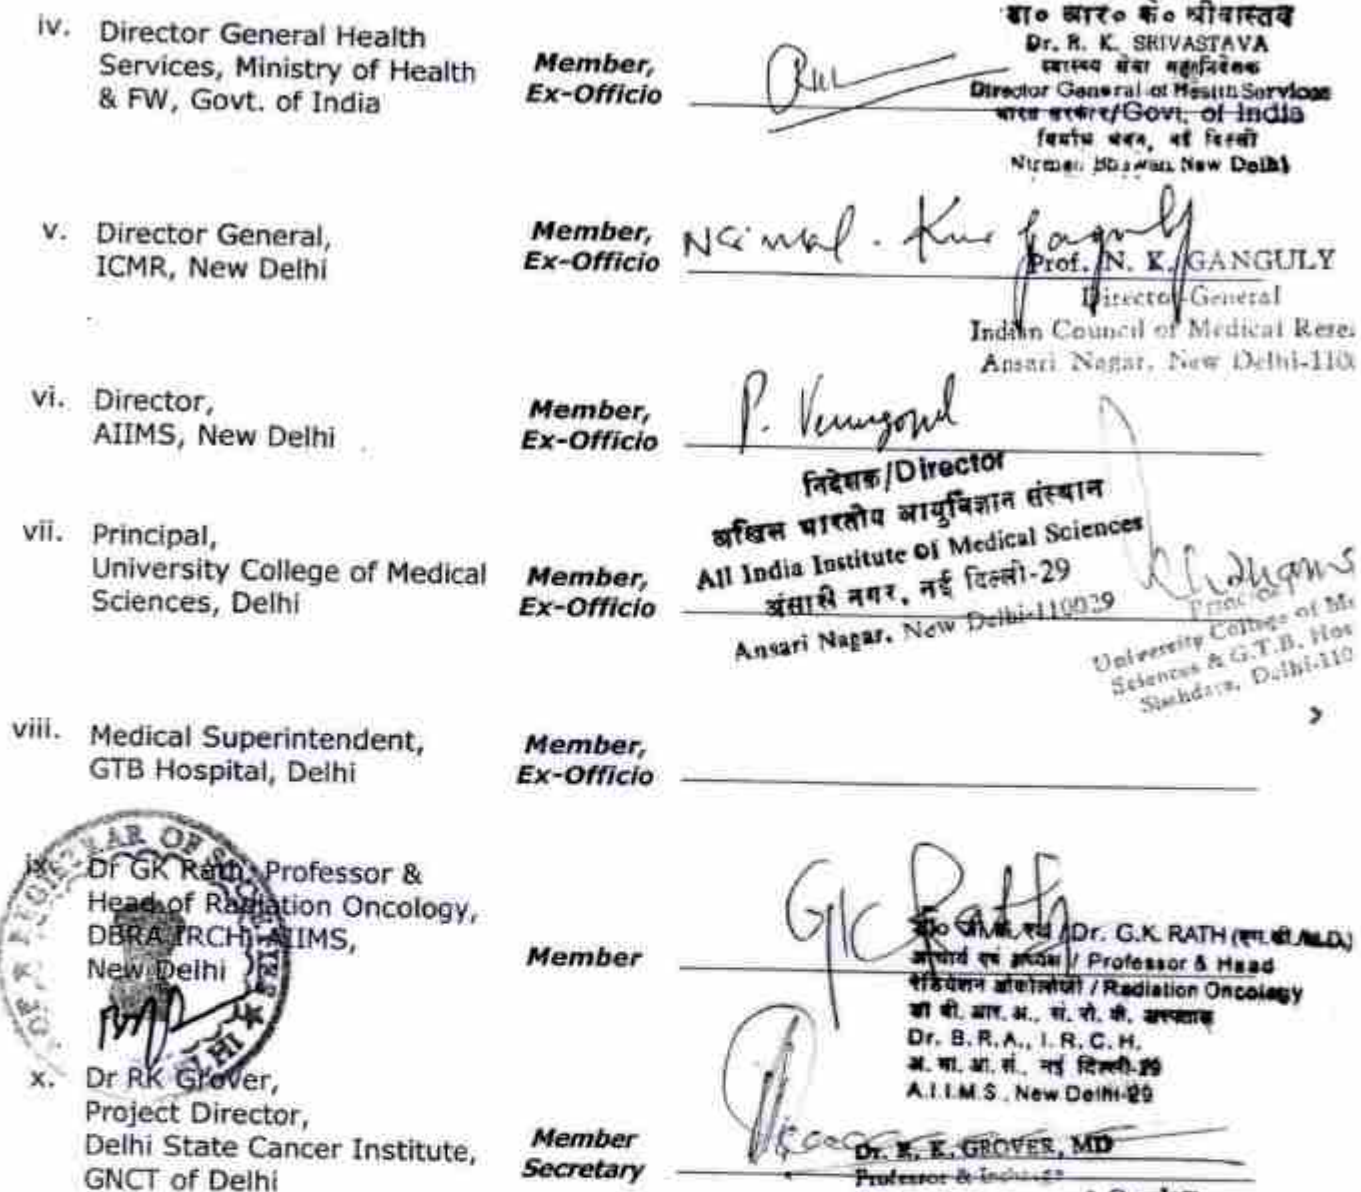 iv. Director General Health
Services, Ministry of Health
& FW, Govt. of India
Member,
Ex-Officio
डा० आर० के० श्रीवास्तव
Dr. R. K. SRIVASTAVA
स्वास्थ्य सेवा महानिदेशक
Director General of Health Services
भारत सरकार/Govt. of India
निर्माण भवन, नई दिल्ली
Nirman Bhawan, New Delhi
v. Director General,
ICMR, New Delhi
Member,
Ex-Officio
Prof. N. K. GANGULY
Director-General
Indian Council of Medical Rese
Ansari Nagar, New Delhi-110
vi. Director,
AIIMS, New Delhi
Member,
Ex-Officio
P. Venugopal
निदेशक/Director
अखिल भारतीय आयुर्विज्ञान संस्थान
All India Institute of Medical Sciences
अंसारी नगर, नई दिल्ली-29
Ansari Nagar, New Delhi-110029
vii. Principal,
University College of Medical
Sciences, Delhi
Member,
Ex-Officio
Principal
University College of Me
Sciences & G.T.B. Hos
Shahdara, Delhi-110
viii. Medical Superintendent,
GTB Hospital, Delhi
Member,
Ex-Officio
ix. Dr GK Rath, Professor &
Head of Radiation Oncology,
DBRA IRCH, AIIMS,
New Delhi
REGISTRAR OF SOCIETIES
Member
GK Rath
/Dr. G.K. RATH
आचार्य एवं अध्यक्ष / Professor & Head
रेडियेशन ओंकोलोजी / Radiation Oncology
Dr. B.R.A., I.R.C.H.
अ. भा. आ. सं., नई दिल्ली-29
A.I.I.M.S., New Delhi-29
x. Dr RK Grover,
Project Director,
Delhi State Cancer Institute,
GNCT of Delhi
Member
Secretary
Dr. R. K. GROVER, MD
Professor & Incharge